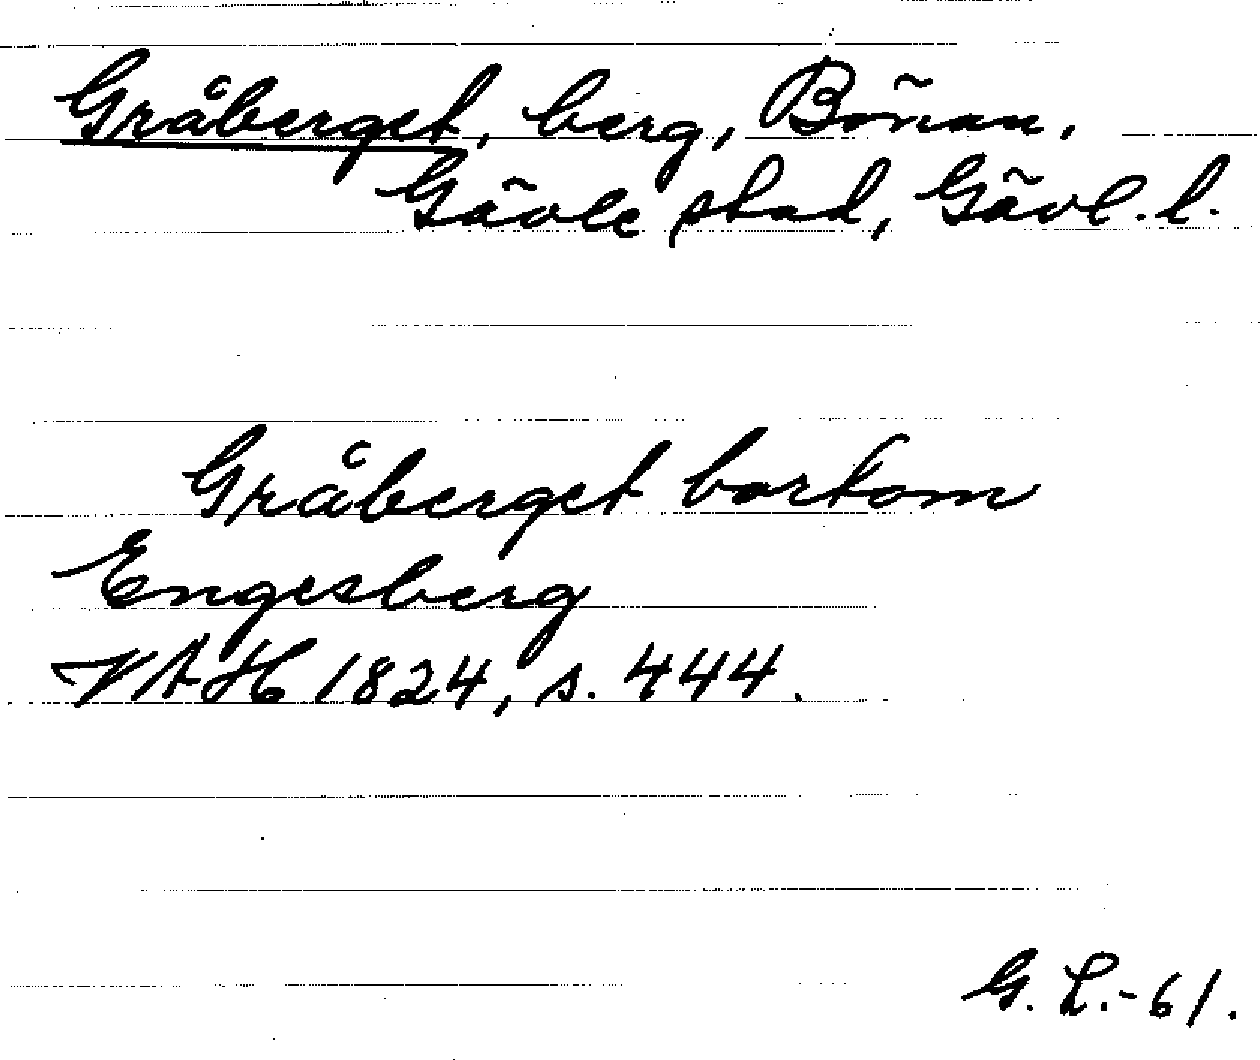 Gråberget, berg, Bönan,
Gävle stad, Gävl. l.
Gråberget bortom
Engesberg
VAH 1824, s. 444.
G. L.-61.